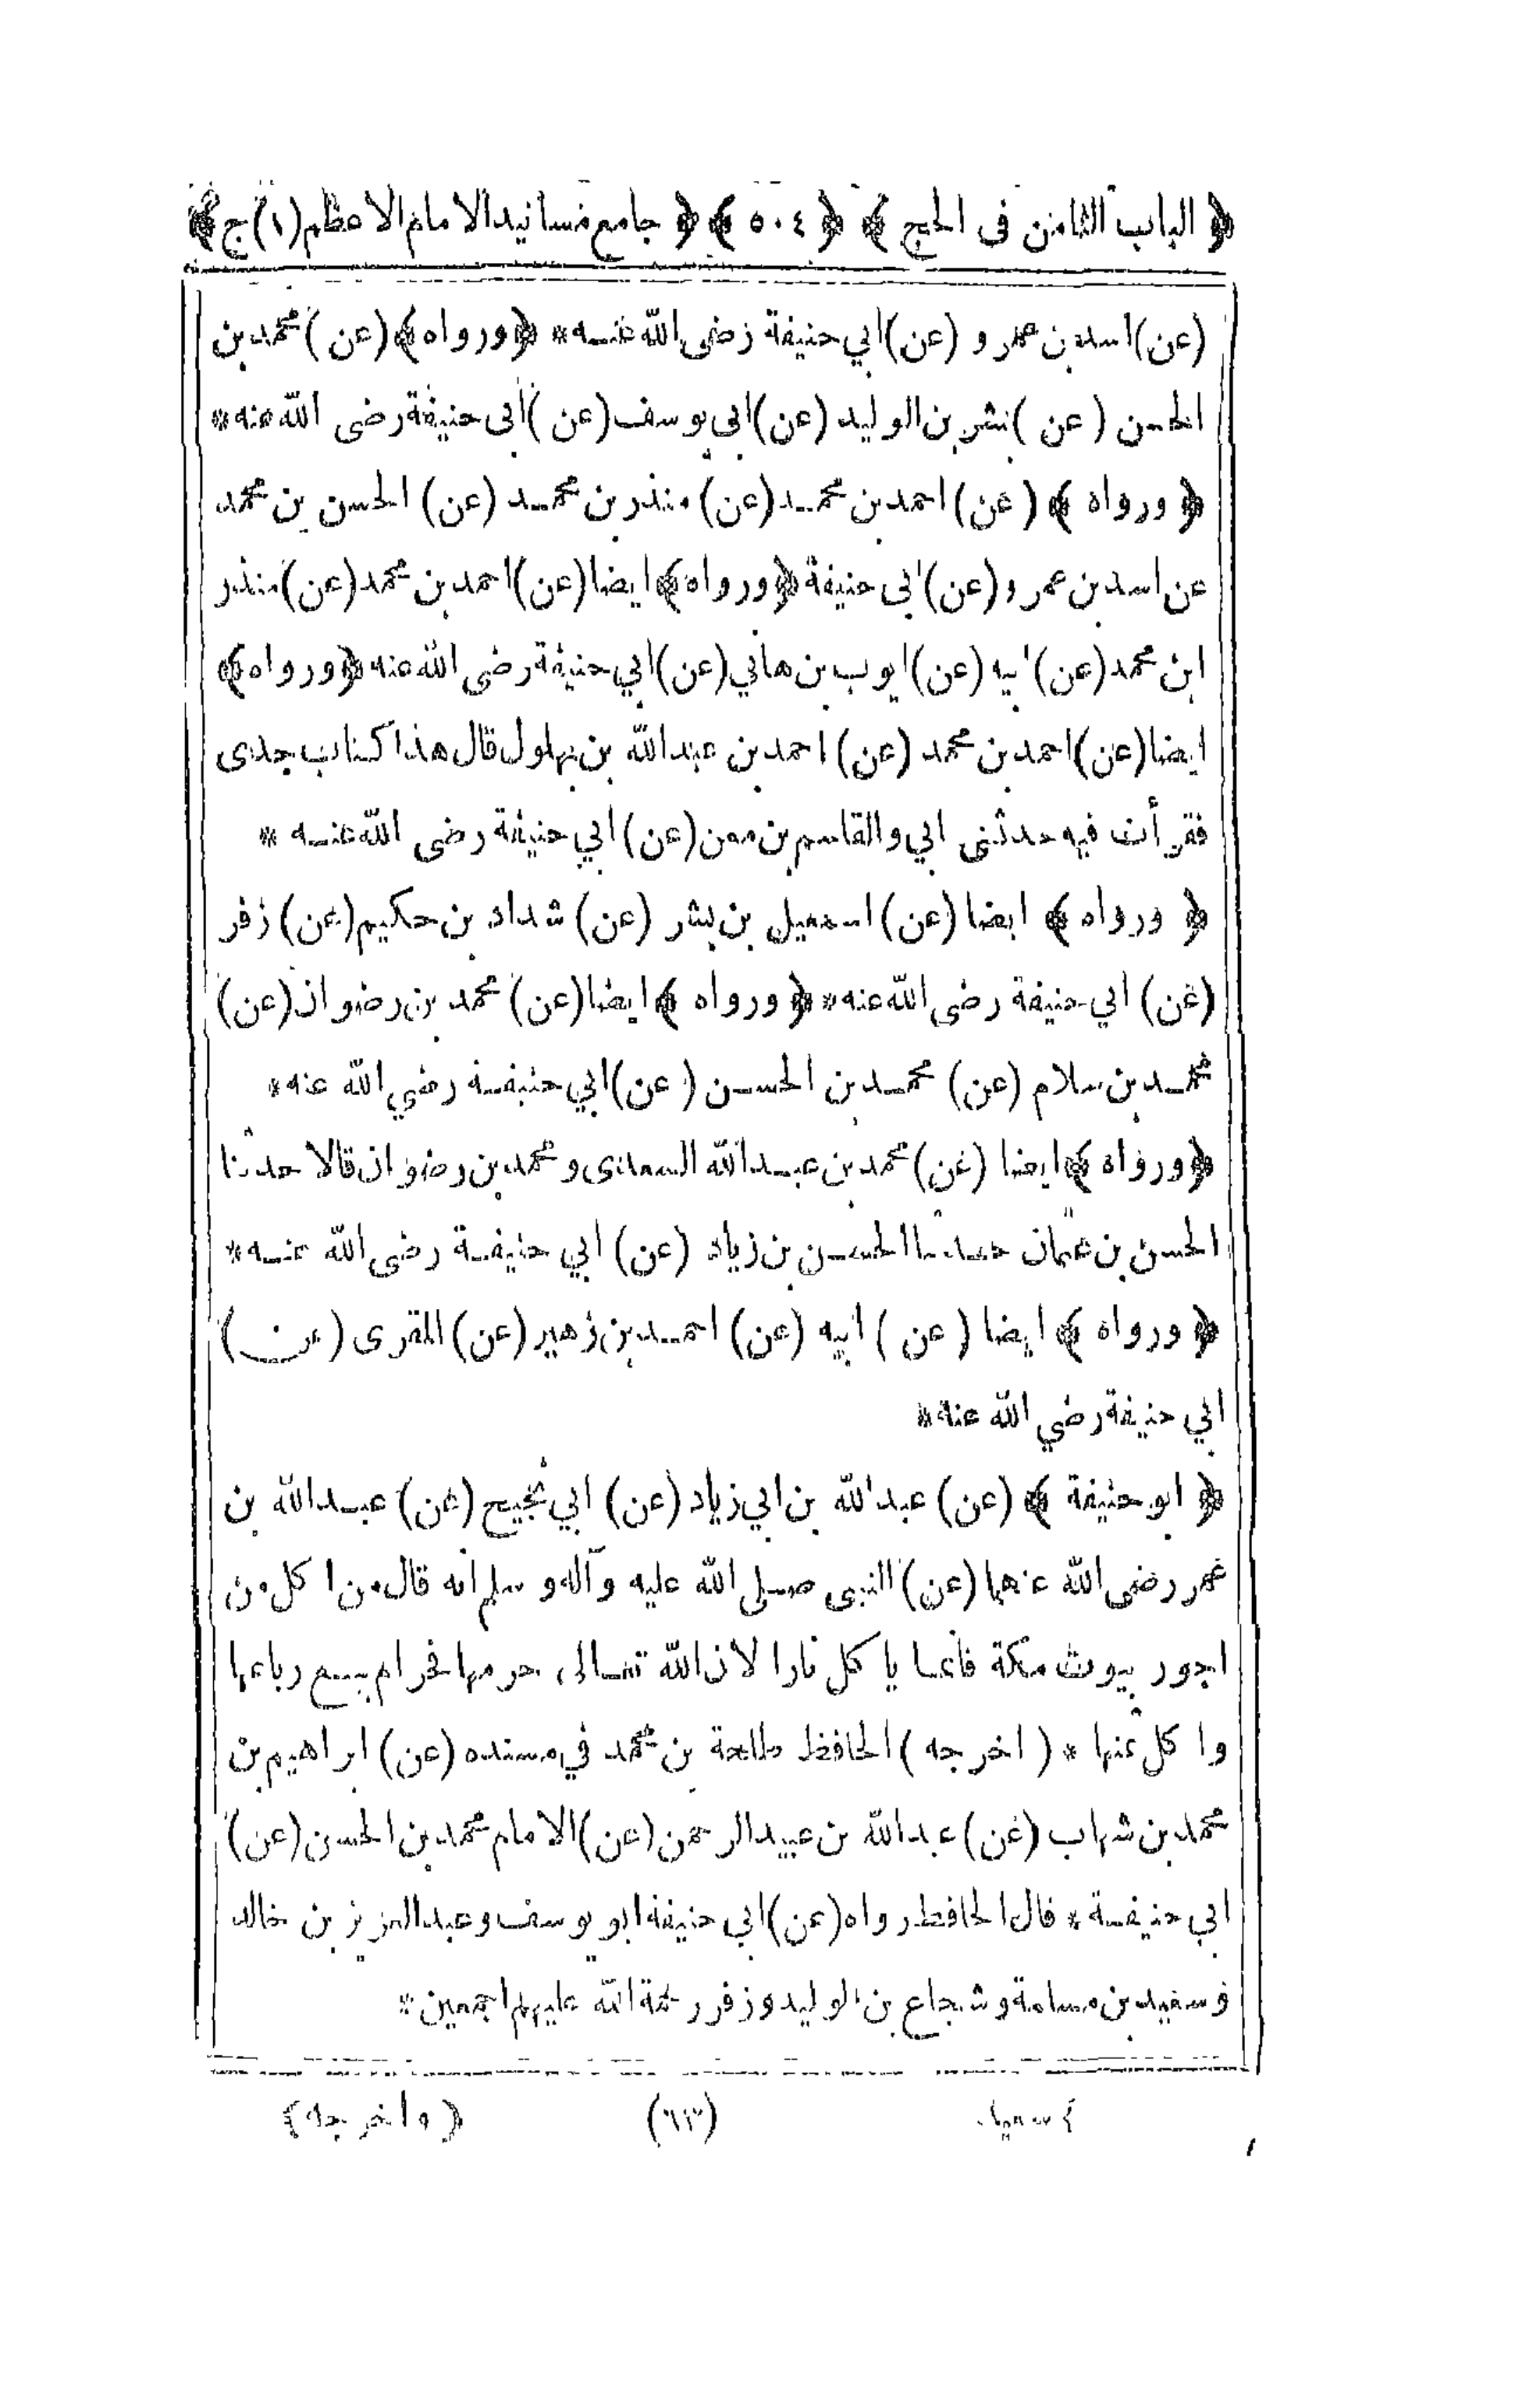 ﴿ الباب الثامن فى الحج ﴾ ﴿ ٥٠٤ ﴾ ﴿ جامع مسانيد الامام الاعظم (١) ج ﴾
(عن) اسد بن عمرو (عن) ابي حنيفة رضى الله عنه * ﴿ ورواه ﴾ (عن) محمد بن
الحسن (عن) بشر بن الوليد (عن) ابى يوسف (عن) ابى حنيفة رضى الله عنه *
﴿ ورواه ﴾ (عن) احمد بن محمد (عن) منذر بن محمد (عن) الحسن بن محمد
عن اسد بن عمرو (عن) ابى حنيفة ﴿ ورواه ﴾ ايضا (عن) احمد بن محمد (عن) منذر
ابن محمد (عن) ابيه (عن) ايوب بن هاني (عن) ابي حنيفة رضى الله عنه ﴿ ورواه ﴾
ايضا (عن) احمد بن محمد (عن) احمد بن عبد الله بن بهلول قال هذا كتاب جدى
فقرأت فيه حدثنى ابي والقاسم بن معن (عن) ابي حنيفة رضى الله عنه *
﴿ ورواه ﴾ ايضا (عن) اسمعيل بن بشر (عن) شداد بن حكيم (عن) زفر
(عن) ابي حنيفة رضى الله عنه * ﴿ ورواه ﴾ ايضا (عن) محمد بن رضوان (عن)
محمد بن سلام (عن) محمد بن الحسن (عن) ابي حنيفة رضي الله عنه *
﴿ ورواه ﴾ ايضا (عن) محمد بن عبد الله السعدى ومحمد بن رضوان قالا حدثنا
الحسن بن عثمان حدثنا الحسن بن زياد (عن) ابي حنيفة رضى الله عنه *
﴿ ورواه ﴾ ايضا (عن) ابيه (عن) احمد بن زهير (عن) المقرى (عن)
ابي حنيفة رضي الله عنه *
﴿ ابو حنيفة ﴾ (عن) عبد الله بن ابي زياد (عن) ابي نجيح (عن) عبد الله بن
عمر رضى الله عنهما (عن) النبى صلى الله عليه وآله وسلم انه قال من اكل من
اجور بيوت مكة فانما ياكل نارا لان الله تعالى حرمها فحرام بيع رباعها
واكل ثمنها * (اخرجه) الحافظ طلحة بن محمد في مسنده (عن) ابراهيم بن
محمد بن شهاب (عن) عبد الله بن عبيد الرحمن (عن) الامام محمد بن الحسن (عن)
ابي حنيفة * قال الحافظ رواه (عن) ابي حنيفة ابو يوسف وعبد العزيز بن خالد
وسعيد بن مسلمة وشجاع بن الوليد وزفر رحمة الله عليهم اجمعين *
(٦٣) ﴿ واخرجه ﴾